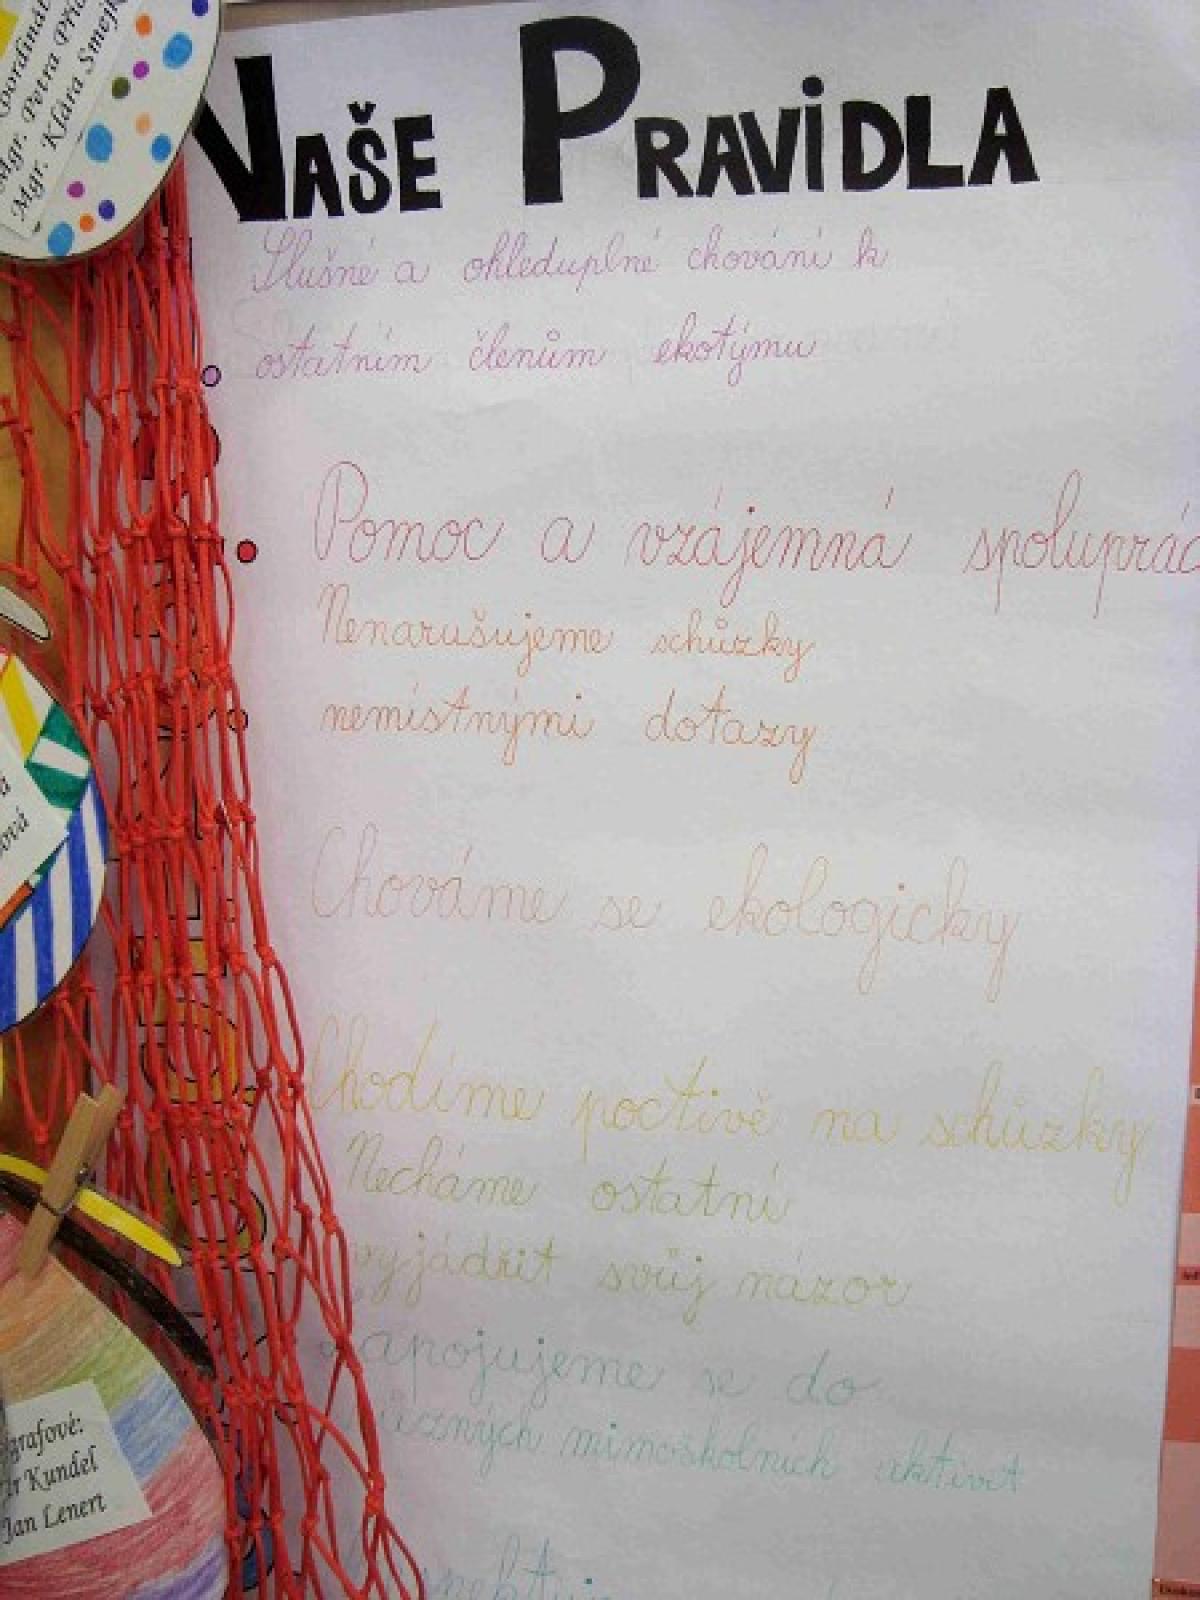 Mgr. Petra
Mgr. Klára
NAŠE PRAVIDLA
Slušné a ohleduplné chování k
ostatním členům ekotýmu
Pomoc a vzájemná
Nenarušujeme schůzky
nemístnými dotazy
Chováme se ekologicky
Chodíme poctivě na schůzky
Necháme ostatní
vyjádřit svůj názor
se do
mimoškolních aktivit
Kundel
Jan Lenert